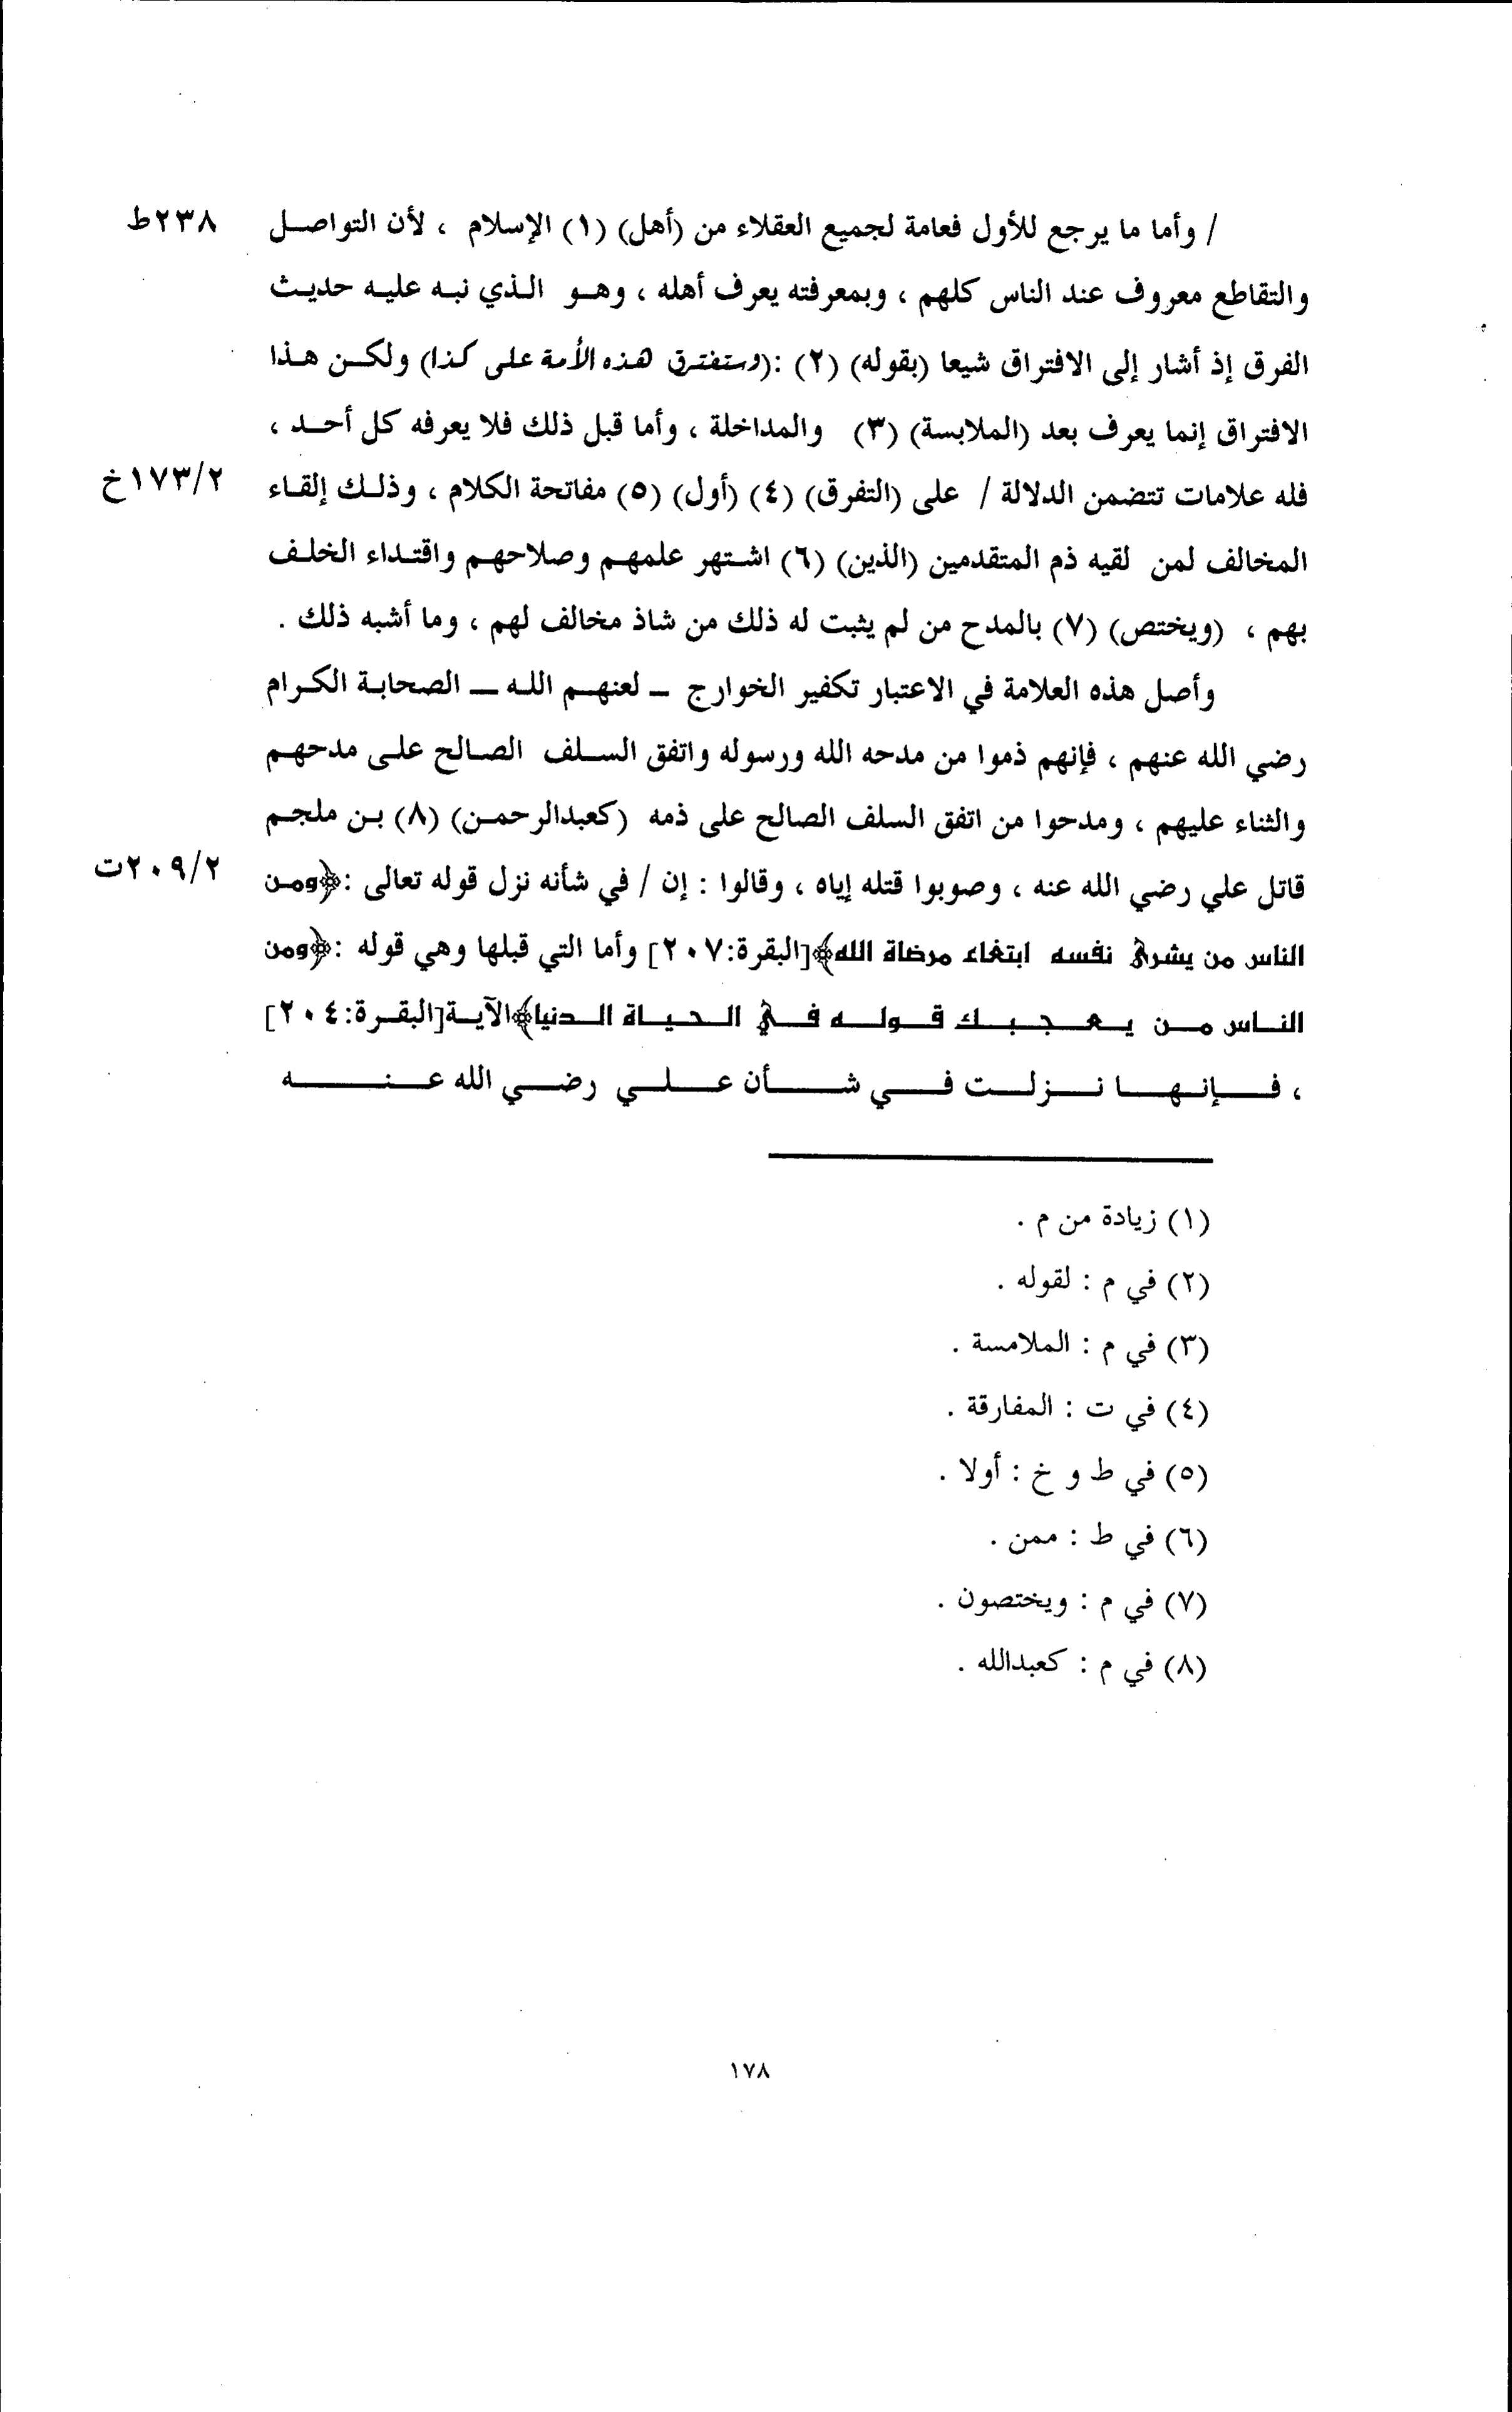 / وأما ما يرجع للأول فعامة لجميع العقلاء من (أهل) (١) الإسلام ، لأن التواصل
٢٣٨ط
والتقاطع معروف عند الناس كلهم ، وبمعرفته يعرف أهله ، وهو الذي نبه عليه حديث
الفرق إذ أشار إلى الافتراق شيعا (بقوله) (٢) :(وستفترق هذه الأمة على كذا) ولكن هذا
الافتراق إنما يعرف بعد (الملابسة) (٣) والمداخلة ، وأما قبل ذلك فلا يعرفه كل أحد ،
فله علامات تتضمن الدلالة / على (التفرق) (٤) (أول) (٥) مفاتحة الكلام ، وذلك إلقاء
١٧٣/٢خ
المخالف لمن لقيه ذم المتقدمين (الذين) (٦) اشتهر علمهم وصلاحهم واقتداء الخلف
بهم ، (ويختص) (٧) بالمدح من لم يثبت له ذلك من شاذ مخالف لهم ، وما أشبه ذلك .
وأصل هذه العلامة في الاعتبار تكفير الخوارج – لعنهم الله – الصحابة الكرام
رضي الله عنهم ، فإنهم ذموا من مدحه الله ورسوله واتفق السلف الصالح على مدحهم
والثناء عليهم ، ومدحوا من اتفق السلف الصالح على ذمه (كعبدالرحمن) (٨) بن ملجم
قاتل علي رضي الله عنه ، وصوبوا قتله إياه ، وقالوا : إن / في شأنه نزل قوله تعالى :﴿ومن
٢٠٩/٢ت
الناس من يشري نفسه ابتغاء مرضاة الله﴾[البقرة:٢٠٧] وأما التي قبلها وهي قوله :﴿ومن
الناس من يعجبك قوله في الحياة الدنيا﴾الآية[البقرة:٢٠٤]
، فإنها نزلت في شأن علي رضي الله عنه
(١) زيادة من م .
(٢) في م : لقوله .
(٣) في م : الملامسة .
(٤) في ت : المفارقة .
(٥) في ط و خ : أولا .
(٦) في ط : ممن .
(٧) في م : ويختصون .
(٨) في م : كعبدالله .
١٧٨